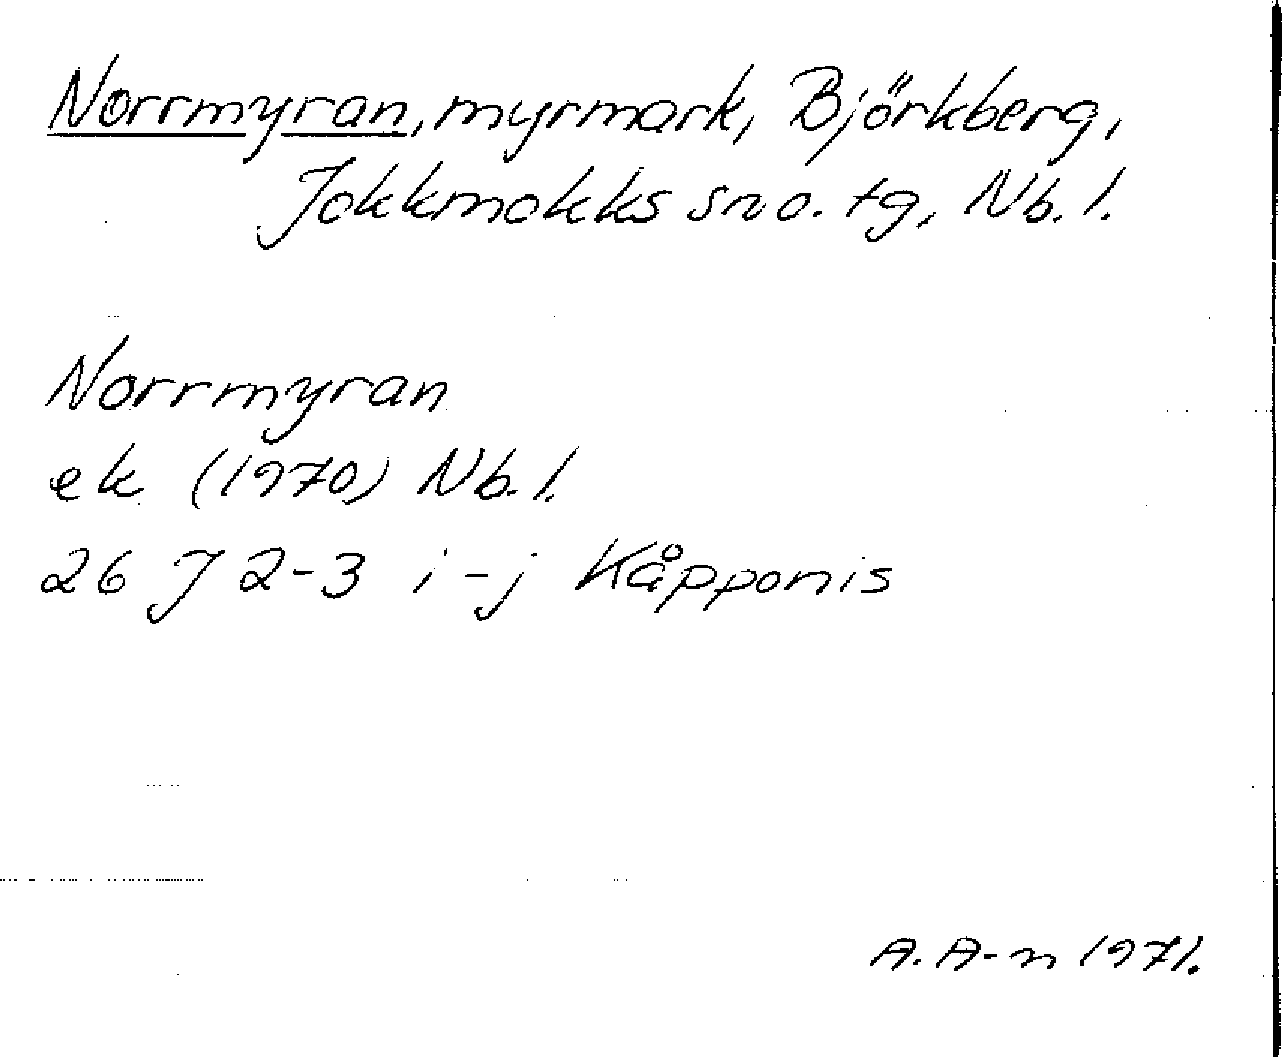 Norrmyran, myrmark, Björkberg,
Jokkmokks sn o. tg, Nb. l.
Norrmyran
ek (1970) Nb. l.
26 J 2-3 i-j Kåpponis
A. A-n 1971.